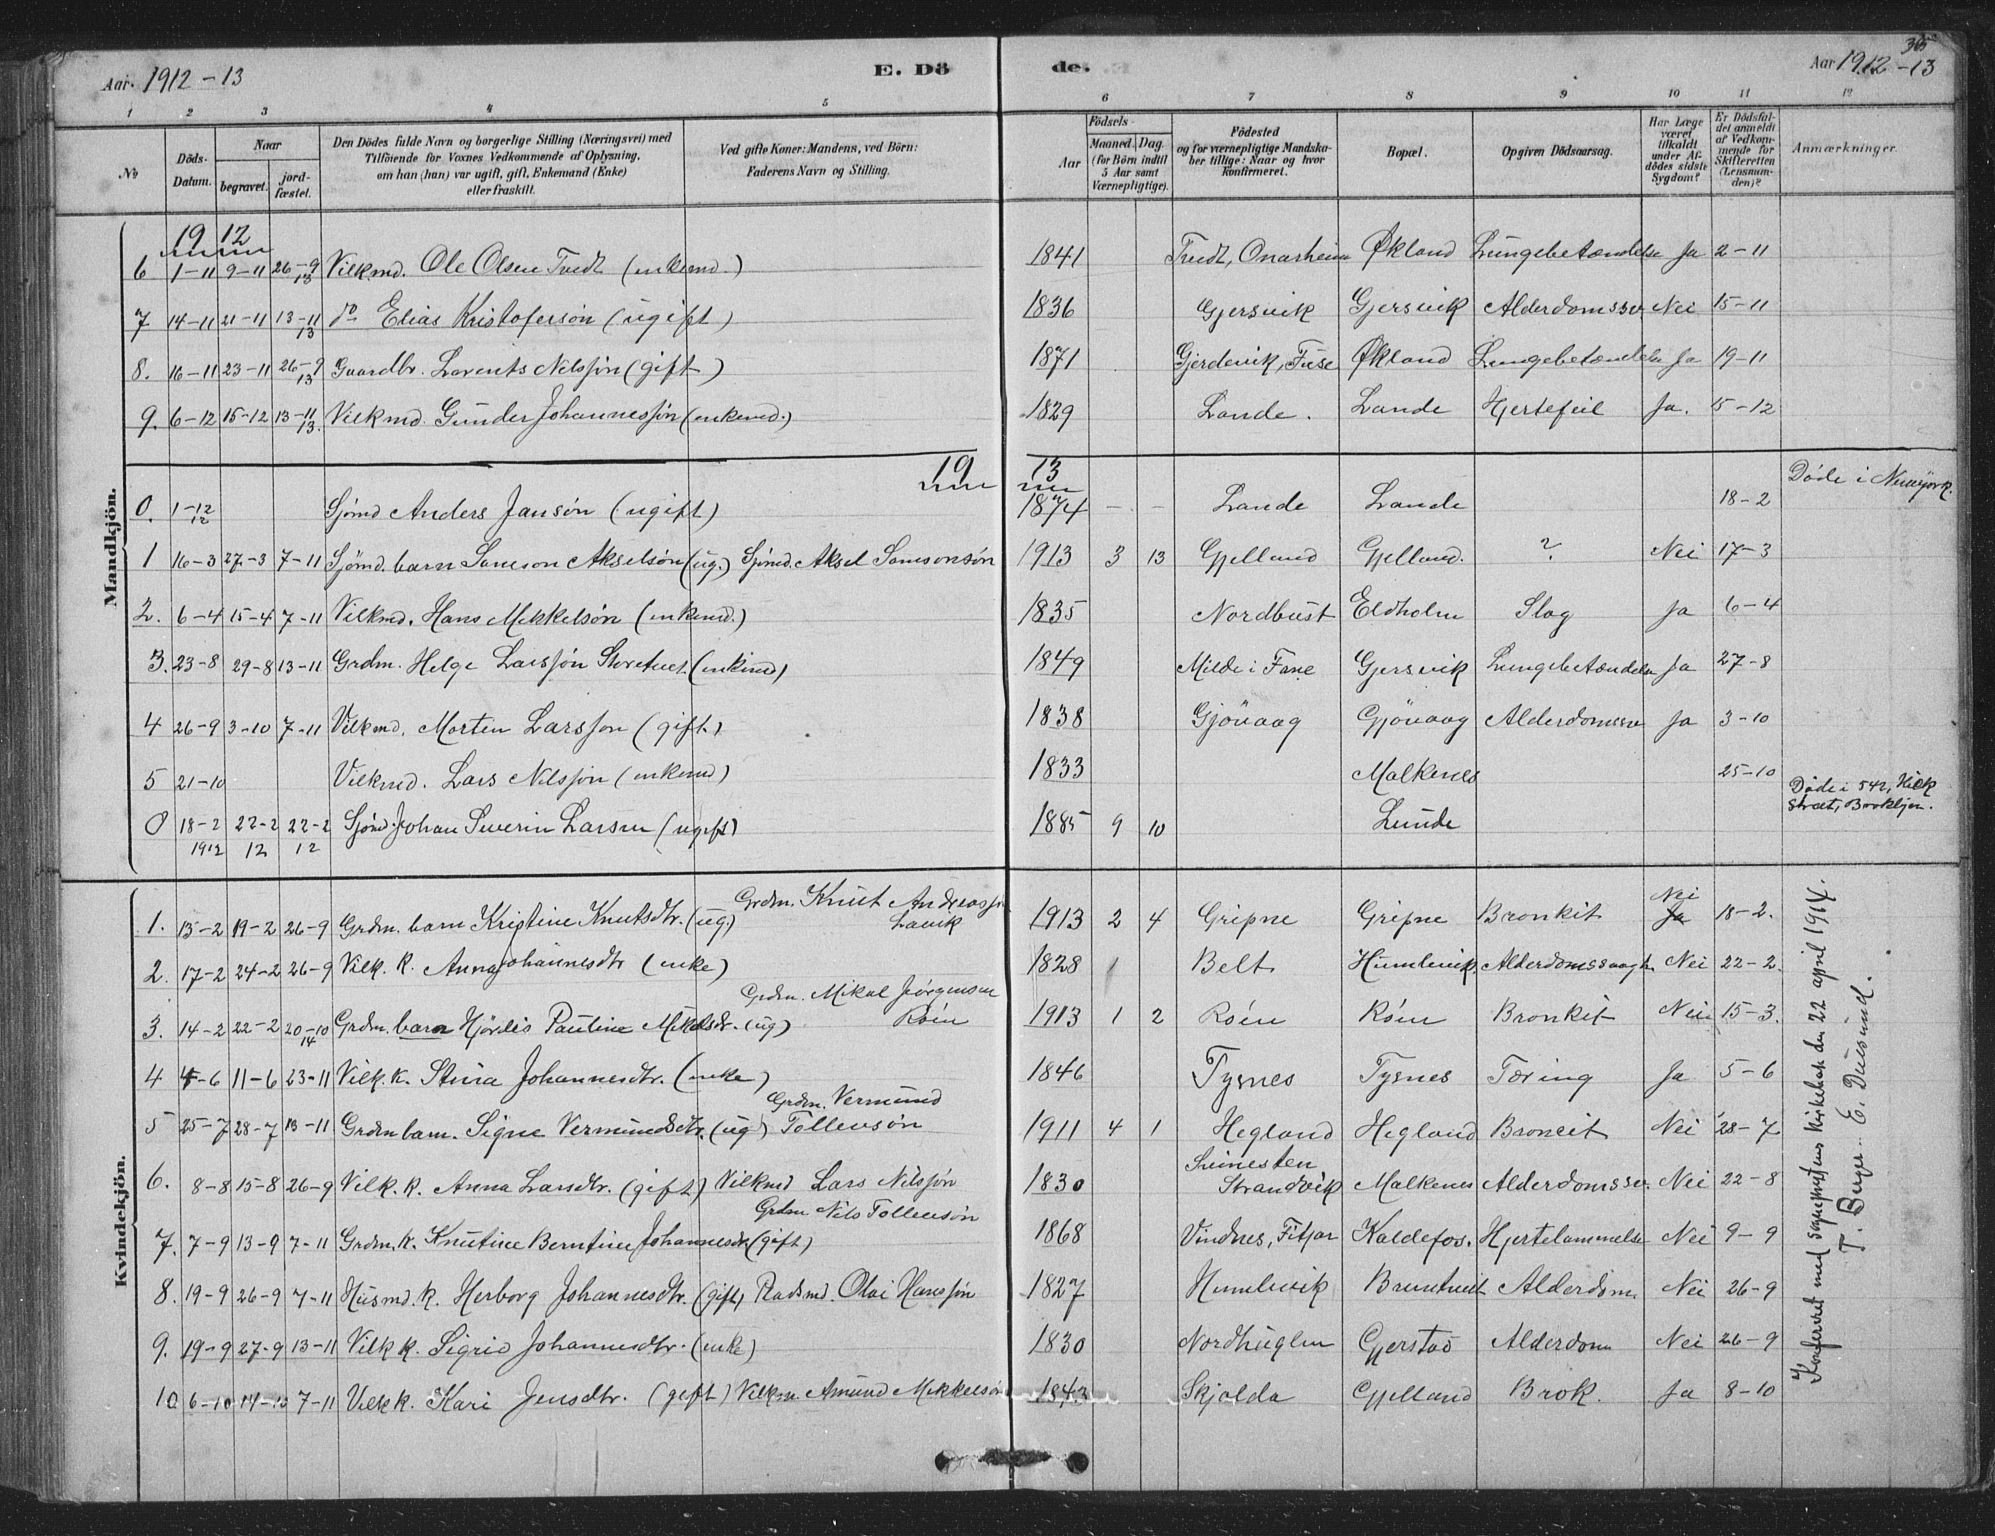 Aar. 1912-13 E. Döde. Aar 1912-13
1 2 3 4 5 6 7 8 9 10 11 12
No Döds-Datum. Naar begravet. jordfæstet. Den Dödes fulde Navn og borgerlige Stilling (Næringsvei) med Tilföiende for Voxnes Vedkommende af Oplysning, om han (hun) var ugift, gift, Enkemand (Enke) eller fraskilt. Ved gifte Koner: Mandens, ved Börn: Faderens Navn og Stilling. Födsels- Aar Maaned. Dag. (for Börn indtil 5 Aar samt Værnepligtige). Födested og for værnepligtige Mandskaber tillige: Naar og hvor konfirmeret. Bopæl. Opgiven Dödsaarsag. Har Læge været tilkaldt under Afdödes sidste Sygdom? Er Dödsfaldet anmeldt af Vedkommende for Skifteretten (Lensmanden)? Anmærkninger.
Mandkjön.
19 12
6 1-11 9-11 26-9 13 Vilkmd. Ole Olsen Tvedt (enkemd.) 1841 Tvedt, Onarheim Økland Lungebetændelse Ja 2-11
7 14-11 21-11 13-11 13 do Elias Kristofersøn (ugift) 1836 Gjersvik Gjersvik Alderdomssv. Nei 15-11
8. 16-11 23-11 26-9 13 Gaardbr. Lorents Nilssøn (gift) 1871 Gjerdevik, Fuse Økland Lungebetændelse Ja 19-11
9. 6-12 15-12 13-11 13. Vilkmd. Gunder Johannessøn (enkemd.) 1829 Lande. Lande Hjertefeil Ja. 15-12
19 13
0. 1-12 12 Sjømd Anders Jansøn (ugift) 1874 - - Lande Lande 18-2 Døde i Newyork.
1 16-3 27-3 7-11 Sjømd. barn Samson Akselsøn (ug.) Sjømd. Aksel Samsonsøn 1913 3 13 Gjelland Gjelland. ? Nei 17-3
2. 6-4 15-4 7-11 Vilkmd. Hans Mikkelsøn (enkemd.) 1835 Nordbust Eldholm Slag Ja 6-4
3. 23-8 29-8 13-11 Grdm. Helge Larssøn Storetvet (enkemd) 1849 Milde i Fane Gjersvik Lungebetændelse Ja 27-8
4 26-9 3-10 7-11 Vilkmd. Morten Larsson (gift) 1838 Gjövaag Gjövaag Alderdomssv Ja 3-10
5 21-10 Vilkmd. Lars Nilssøn (enkemd) 1833 Malkenes 25-10
0 18-2 1912 22-2 12 22-2 12 Sjømd. Johan Severin Larsen (ugift) 1885 9 10 Lunde Døde i 542, Hick Street, Brooklyn.
Kvindekjön.
1. 13-2 19-2 26-9 Grdm. barn Kristine Knutsdtr. (ug) Grdm. Knut Andreassøn Lavik 1913 2 4 Gripne Gripne Bronkit Nei Ja 18-2.
2. 17-2 24-2 26-9 Vilk. k. Anna Johannesdtr (enke) 1828 Belt Humlevik Alderdomssvagh. Nei 22-2.
3. 14-2 22-2 20-10 14 Grdm. barn Hjørdis Pauline Mikalsdtr. (ug) Grdm. Mikal Jørgensen Røen 1913 1 2 Røen Røen Bronkit Nei 15-3.
4 4-6 11-6 23-11 Vilk. k. Stina Johannesdtr. (enke) 1846 Tysnes Tysnes Tæring Ja 5-6
5 25-7 28-7 13-11 Grdm barn. Signe Vermundsdtr. (ug) Grdm. Vermund Tollevsøn 1911 4 1 Hegland Hegland Bronkit Nei 28-7
6. 8-8 15-8 26-9 Vilk. k. Anna Larsdtr. (gift) Vilkmd Lars Nilssøn 1830 Strandvik Malkenes Alderdomssv. Nei 22-8
7. 7-9 13-9 7-11 Grdm. k. Knutine Berntine Johannesdtr (gift) Grdm Nils Tollevsøn 1868 Vindnes, Fitjar Kaldefos. Hjertelammelse Nei 9-9
8. 19-9 26-9 7-11 Husmd. k. Herborg Johannesdtr. (gift) Pladsmd. Olai Hanssøn 1827 Humlevik Bruntveit Alderdom Nei 26-9
9. 19-9 27-9 13-11 Vilk k. Sigrid Johannesdtr. (enke) 1830 Nordhuglen Gjerstad Alderdom Nei 26-9
10 6-10 14-10 7-11 Vilk k. Kari Jensdtr. (gift) Vilkm. Amund Mikkelsøn 1843 Skjolda Gjelland Brok. Ja 8-10
Konfereret med sogneprestens kirkebok den 22 april 1914.